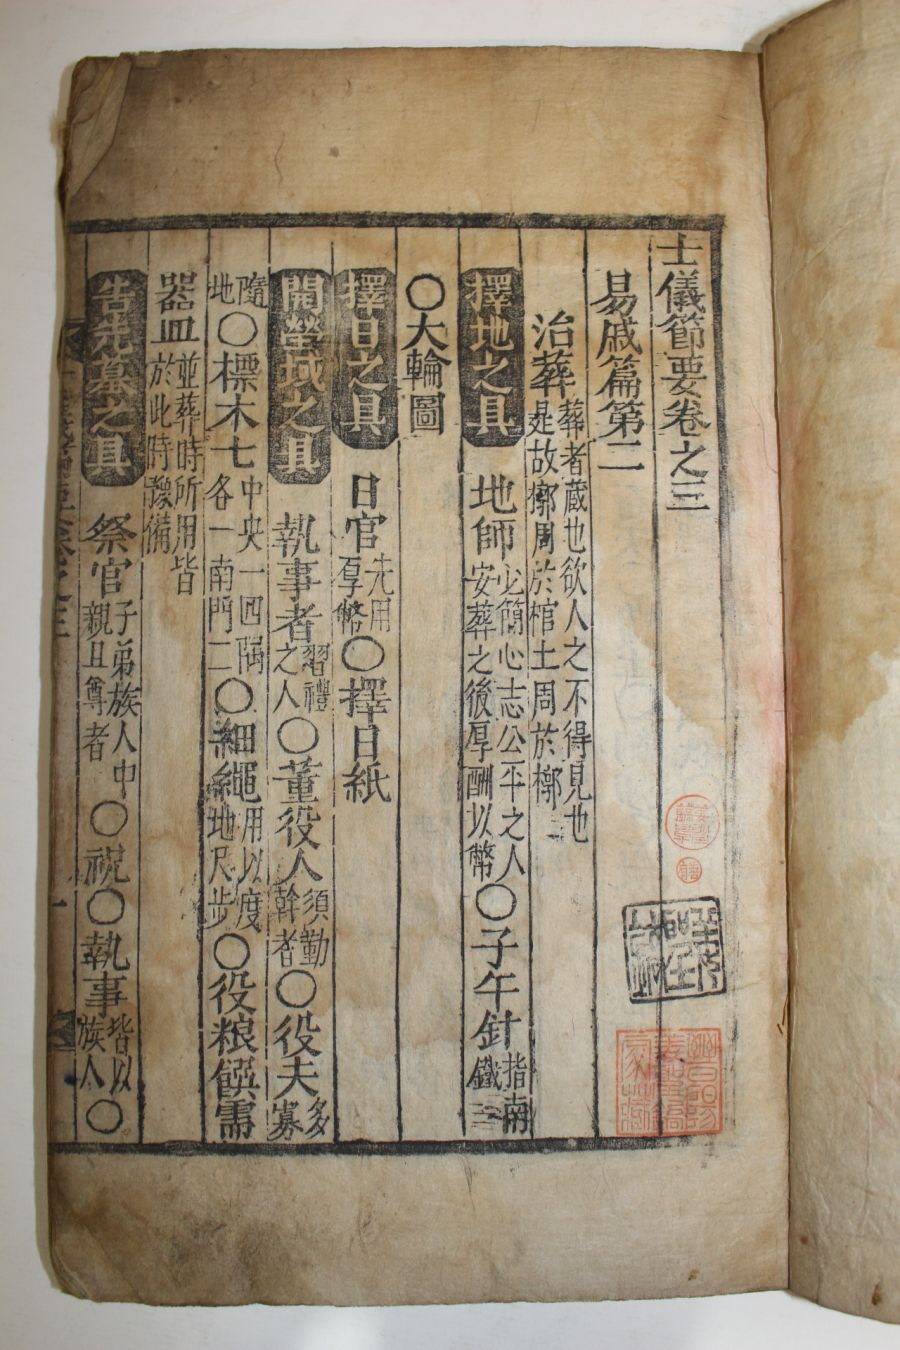 士儀節要卷之三
易戚篇第二
治葬 葬者蔵也欲人之不得見也
是故槨周於棺土周於槨
擇地之具 地師 必簡心志公平之人
安葬之後厚酬以幣 〇子午針 指南
鐵
〇大輪圖
擇日之具 日官 先用
厚幣 〇擇日紙
開塋域之具 執事者 習禮
之人 〇董役人 須勤
幹者 〇役夫 多
寡
隨
地 〇標木七 中央一四隅
各一南門二 〇細繩 用以度
地尺步 〇役粮饌需
器皿 並葬時所用皆
於此時豫備
告先墓之具 祭官 子弟族人中
親且尊者 〇祝〇執事 皆以
族人 〇